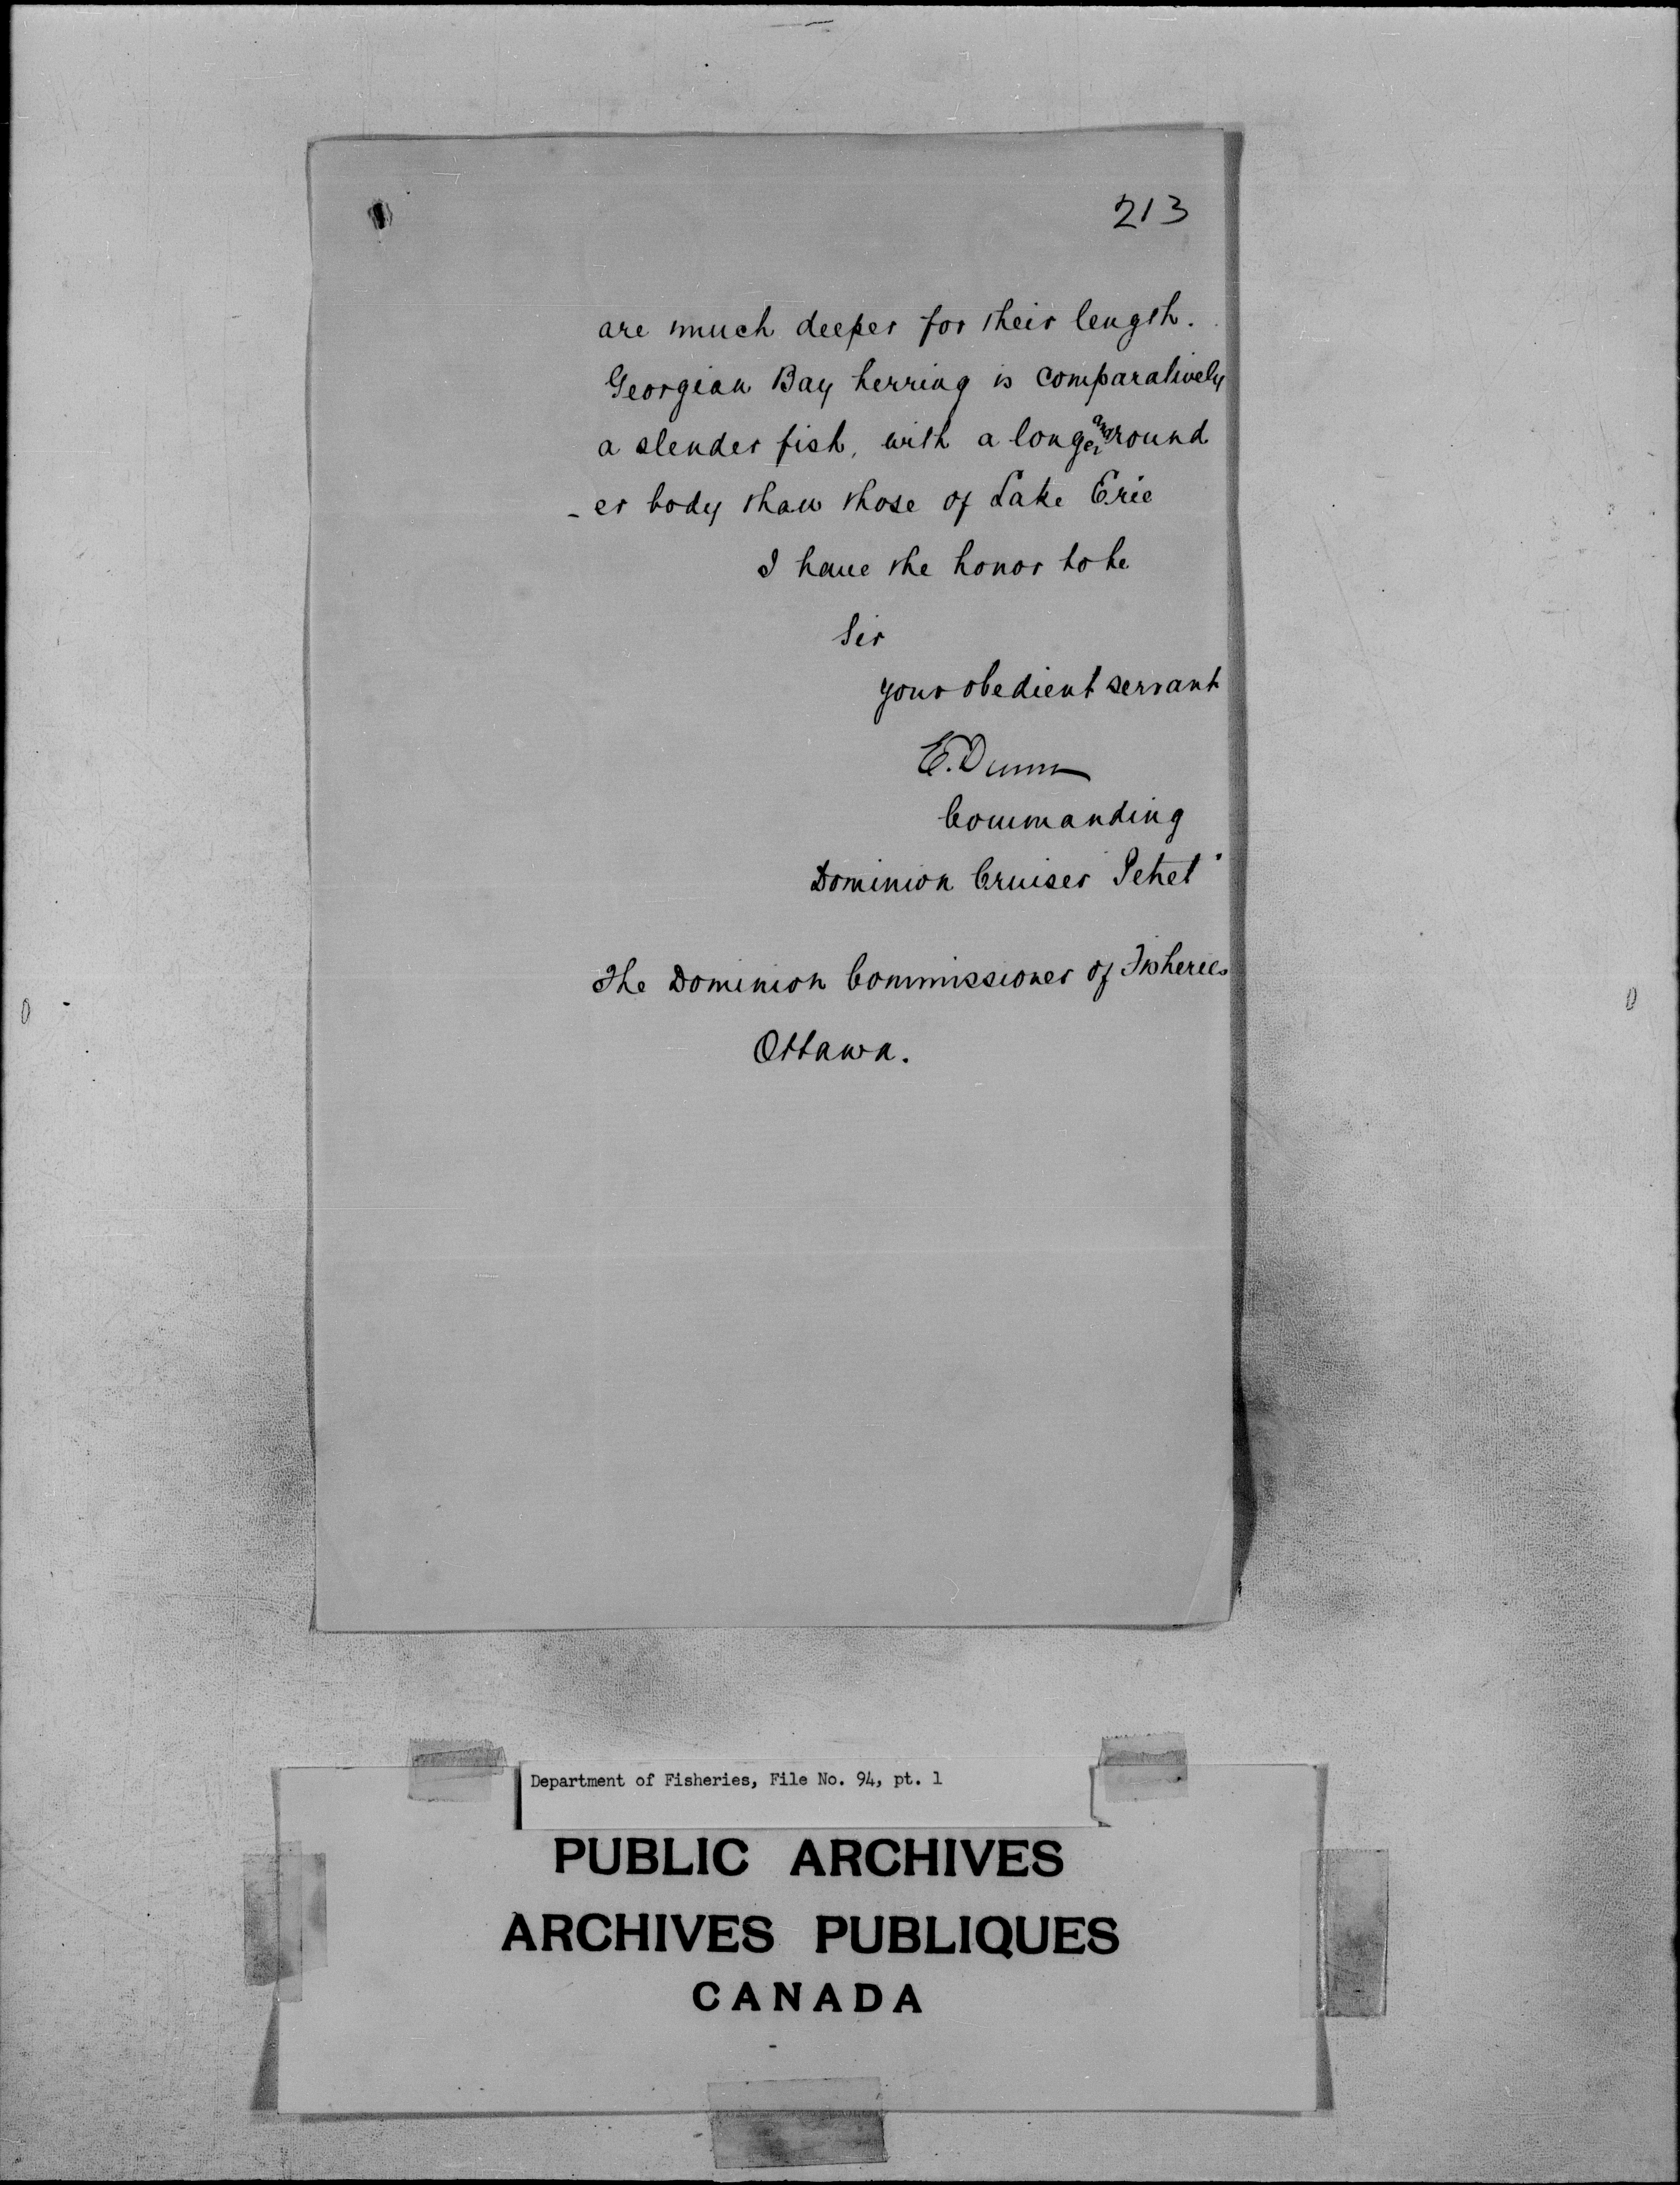 213
are much deeper for their length.
Georgian Bay herring is comparatively
a slender fish, with a longer and round
-er body than those of Lake Erie
I have the honor to be
Sir
your obedient servant
E. Dunn
Commanding
Dominion Cruiser Petrel"
The Dominion Commissioner of Fisheries
Ottawa.
Department of Fisheries, File No. 94, pt. 1
PUBLIC ARCHIVES
ARCHIVES PUBLIQUES
CANADA